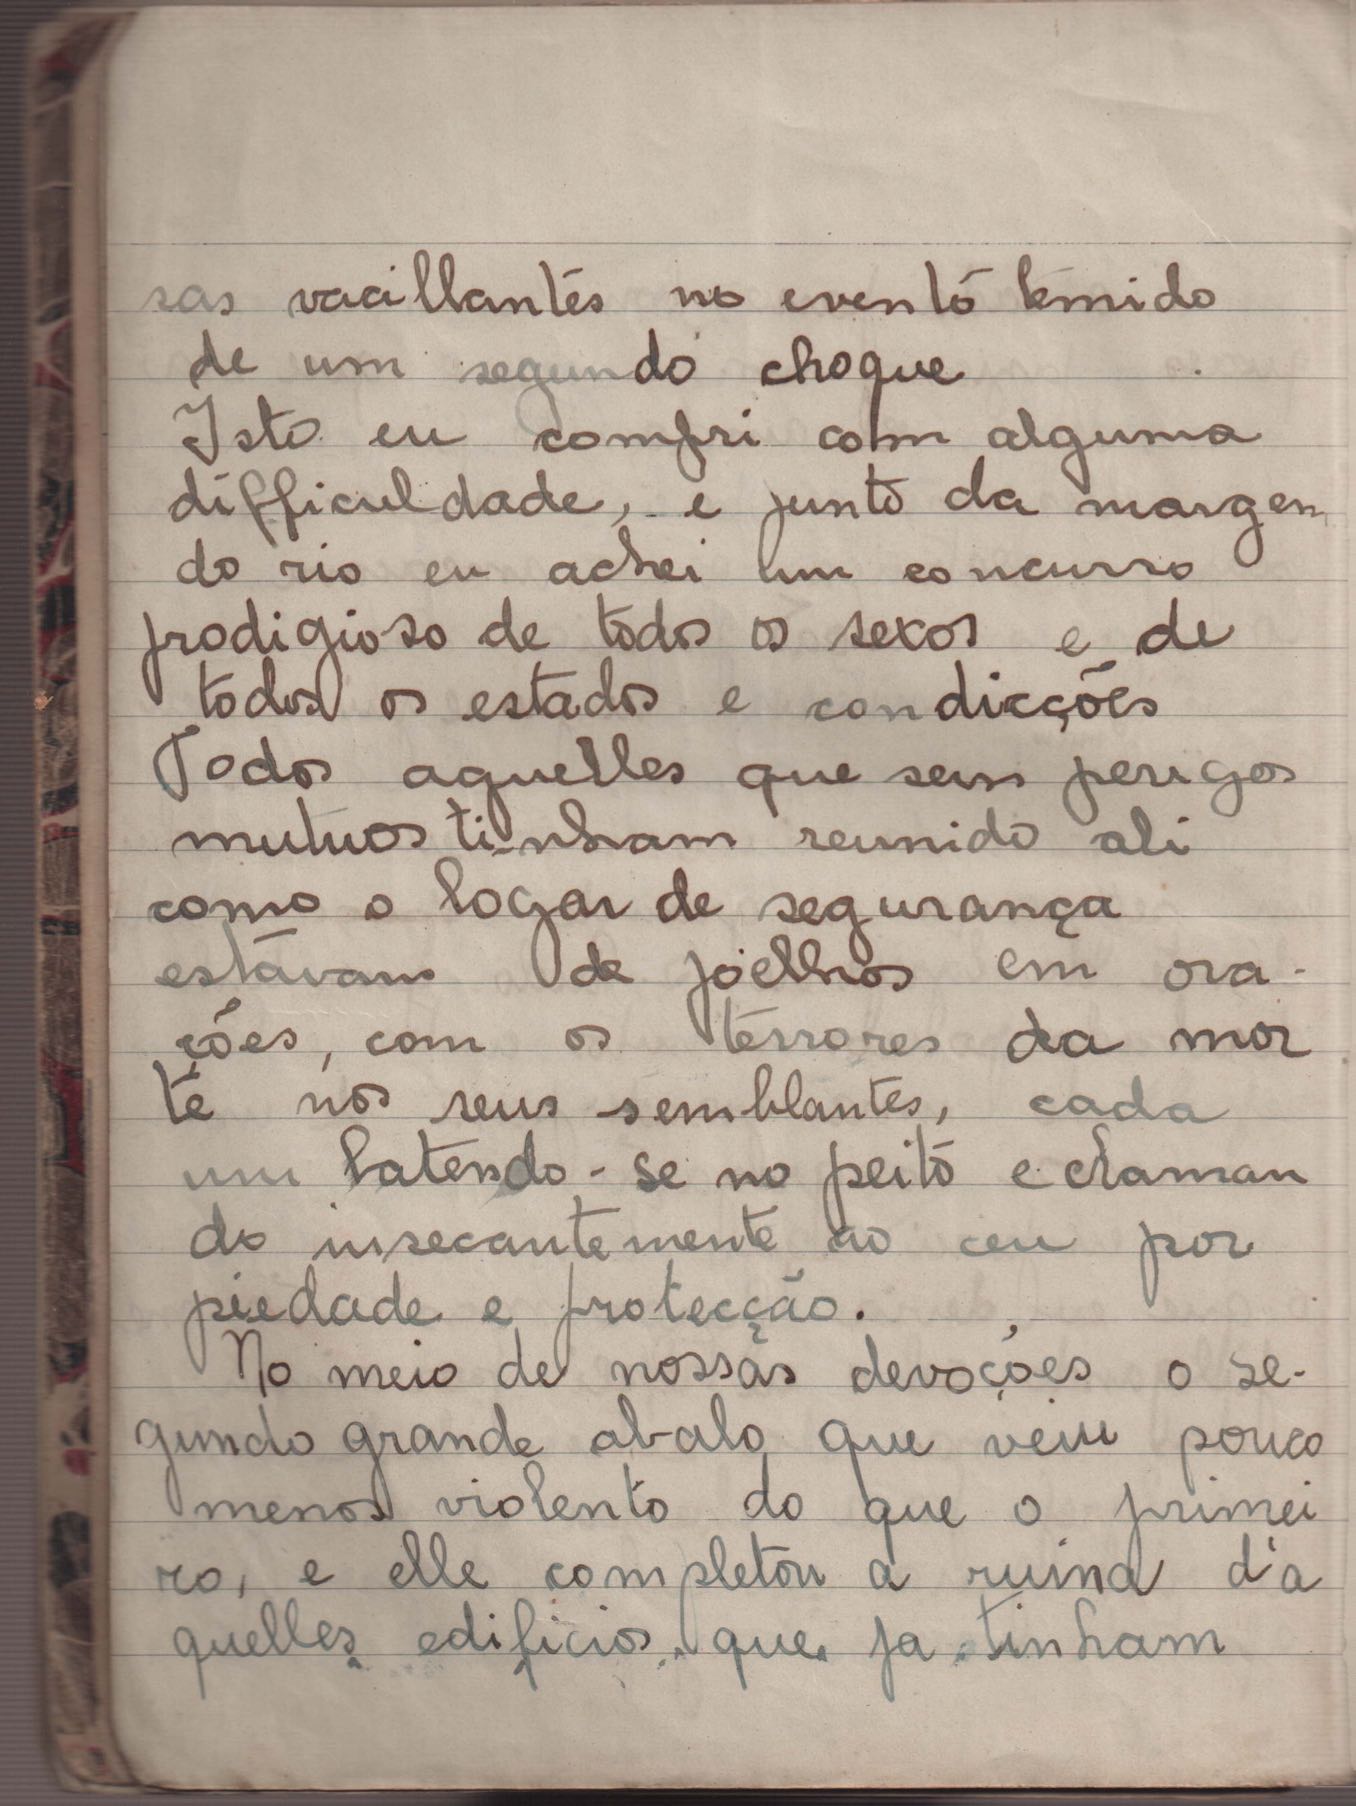 sas vacillantes no evento temido
de um segundo choque
Isto eu compri com alguma
difficuldade, e junto da margem
do rio eu achei um concurso
prodigioso de todos os sexos e de
todos os estados e condicções
Todos aquelles que seus perigos
mutuos tinham reunido ali
como o logar de segurança
estavam de joelhos em ora-
ções, com os terrores da mor
te nos seus semblantes, cada
um batendo-se no peito e chaman
do insecantemente ao ceu por
piedade e protecção.
No meio de nossas devoções o se-
gundo grande abalo que veiu pouco
menos violento do que o primei
ro, e elle completou a ruina d'a
quelles edificios, que ja tinham